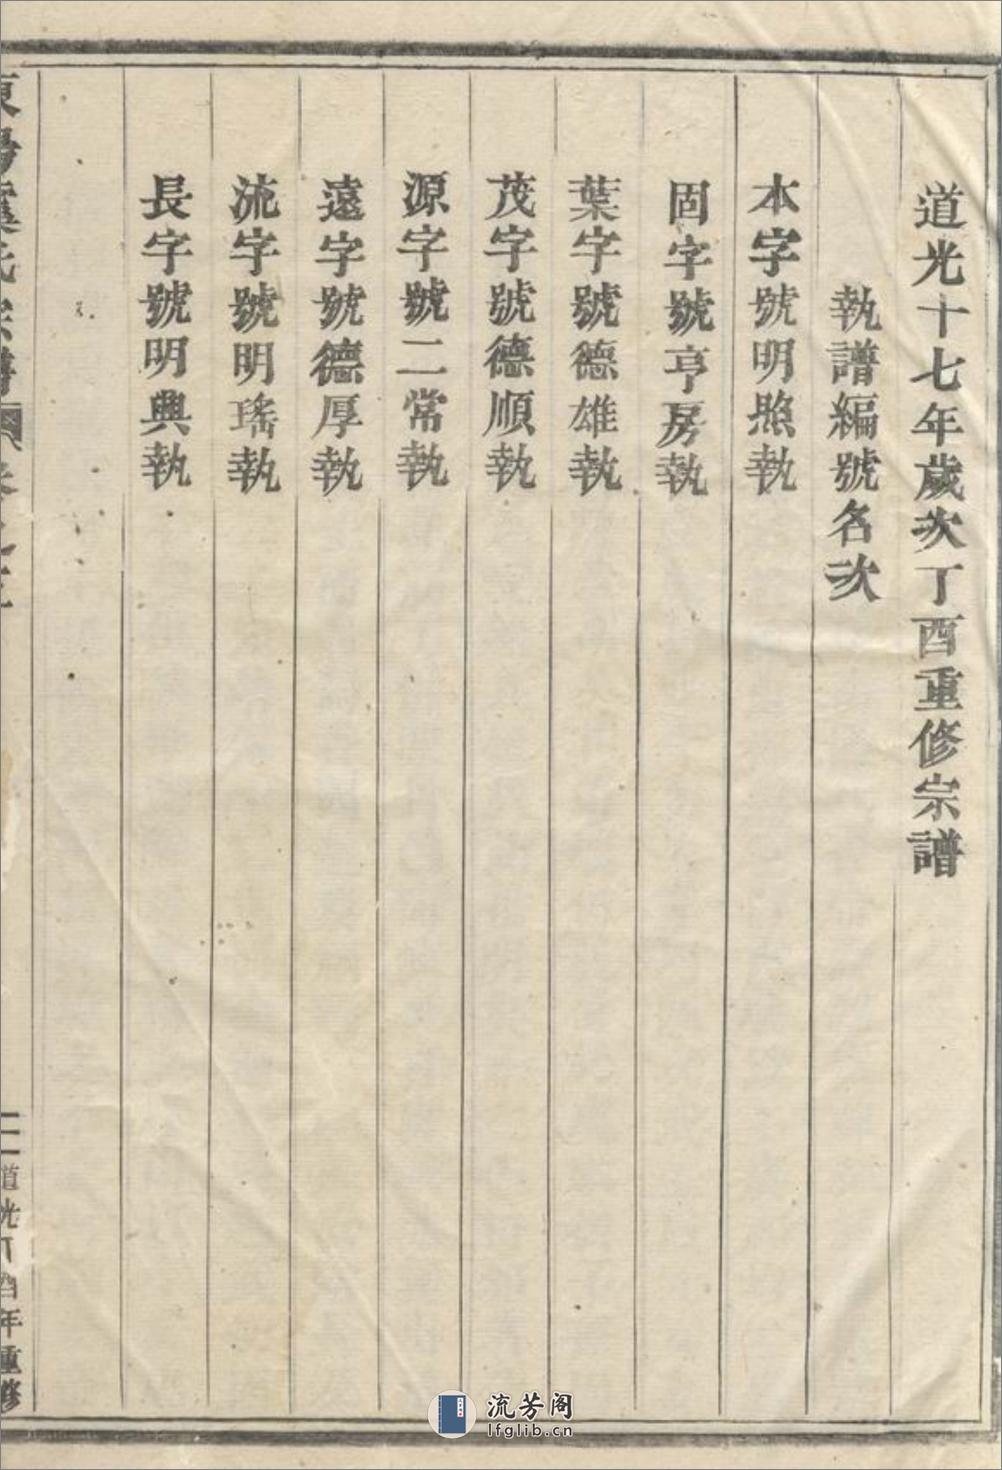 道光十七年歲次丁酉重修宗譜
執譜編號名次
本字號明照執
固字號亨房執
葉字號德雄執
茂字號德順執
源字號二常執
遠字號德厚執
流字號明瑤執
長字號明興執
道光丁酉年重修
流芳阁
lfglib.cn